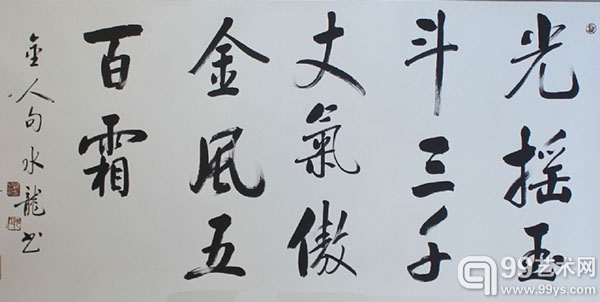 光摇玉
斗三千
丈氣傲
金風五
百霜
金人句水龍书
99艺术网
www.99ys.com